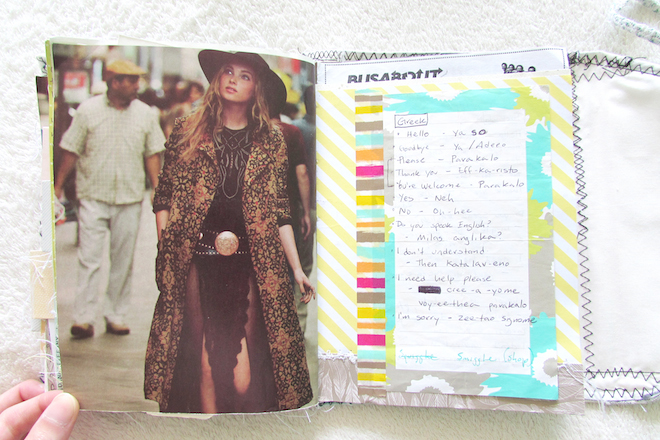 BUSABOUT
Greek
• Hello - Ya so
• Goodbye - Ya / Adero
• Please - Parakalo
• Thank you - Eff-ka-risto
• You're welcome - Parakalo
• Yes - Neh
• No - Oh-hee
• Do you speak English?
- Milas anglika?
• I don't understand
- Then Katalav-eno
• I need help please
- cree-a-yome
voy-ee-thea parakalo
• I'm sorry - zee-tao signome
Smuggle Shop